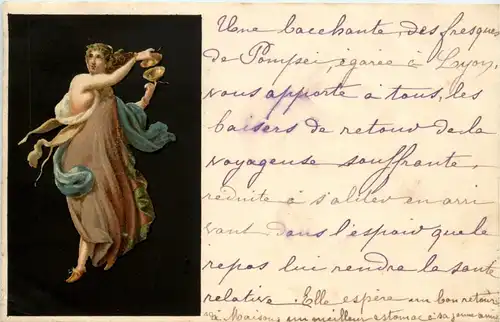 Une bacchante, des fresques
de Pompei, égarée à Lyon,
vous apporte à tous, les
baisers de retour de la
voyageuse souffrante,
réduite à s'aliter en arri
vant dans l'espoir que le
repos lui rendra la santé
relative. Elle espère un bon retour
à Maison, un meilleur estomac à sa